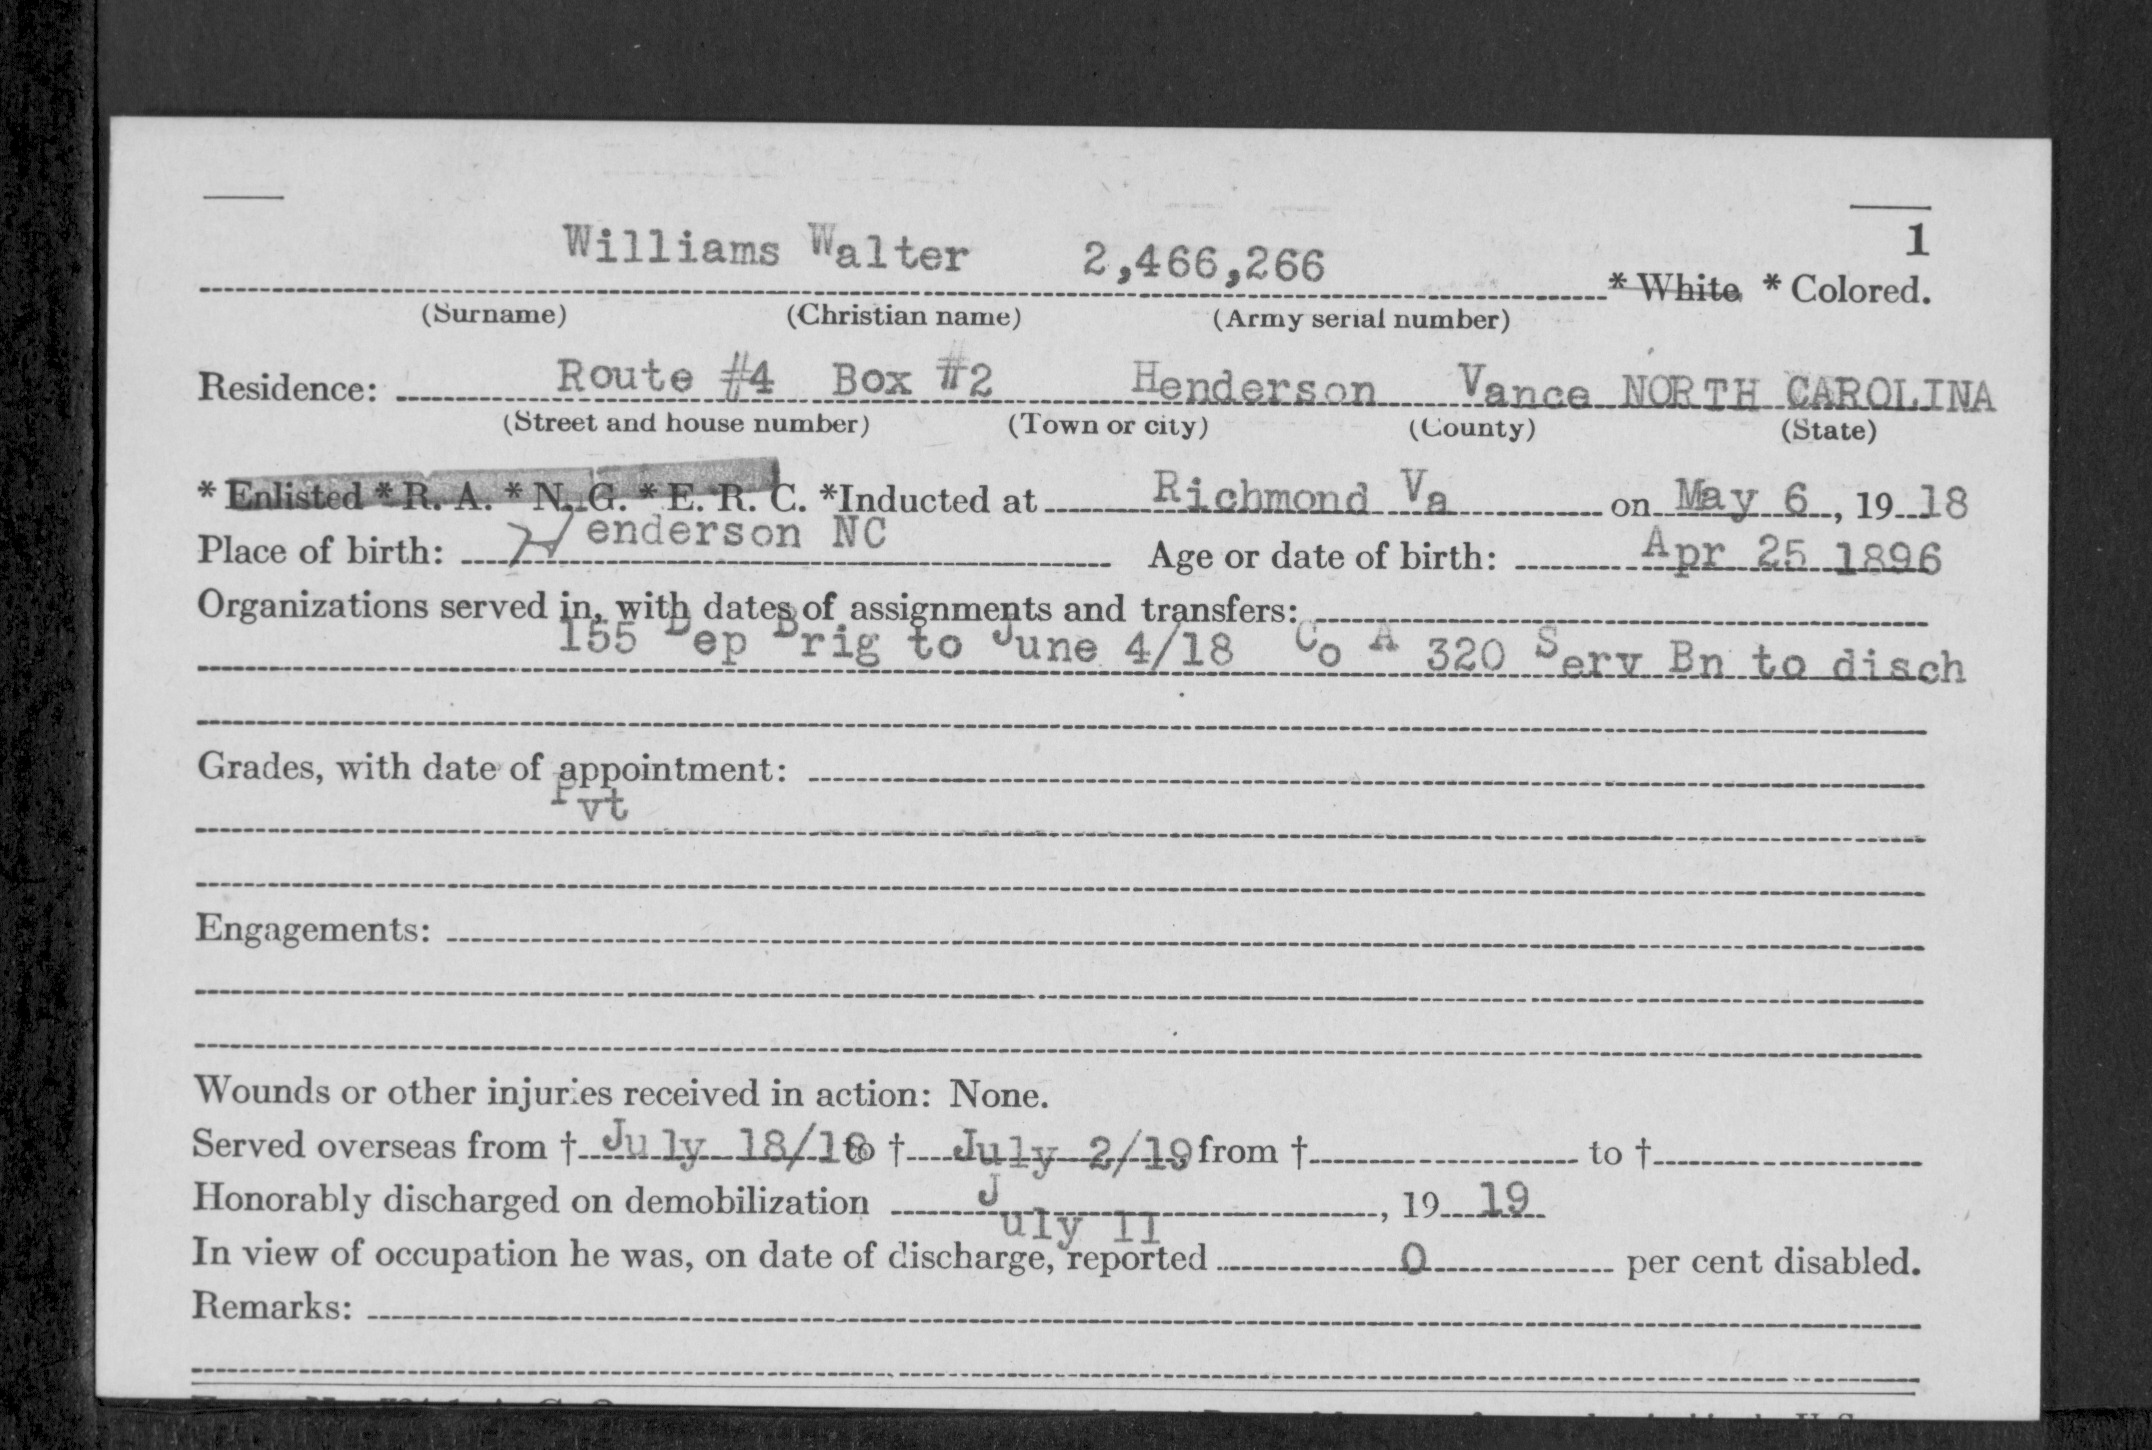 1
Williams Walter 2,466,266 * White * Colored.
(Surname) (Christian name) (Army serial number)
Residence: Route #4 Box #2 Henderson Vance NORTH CAROLINA
(Street and house number) (Town or city) (County) (State)
* Enlisted * R. A. * N. G. * E. R. C. *Inducted at Richmond Va on May 6, 1918
Place of birth: Henderson NC Age or date of birth: Apr 25 1896
Organizations served in, with dates of assignments and transfers:
155 Dep Brig to June 4/18 Co A 320 Serv Bn to disch
Grades, with date of appointment:
Pvt
Engagements:
Wounds or other injuries received in action: None.
Served overseas from † July 18/18 to † July 2/19 from † to †
Honorably discharged on demobilization July 11, 19 19
In view of occupation he was, on date of discharge, reported 0 per cent disabled.
Remarks: